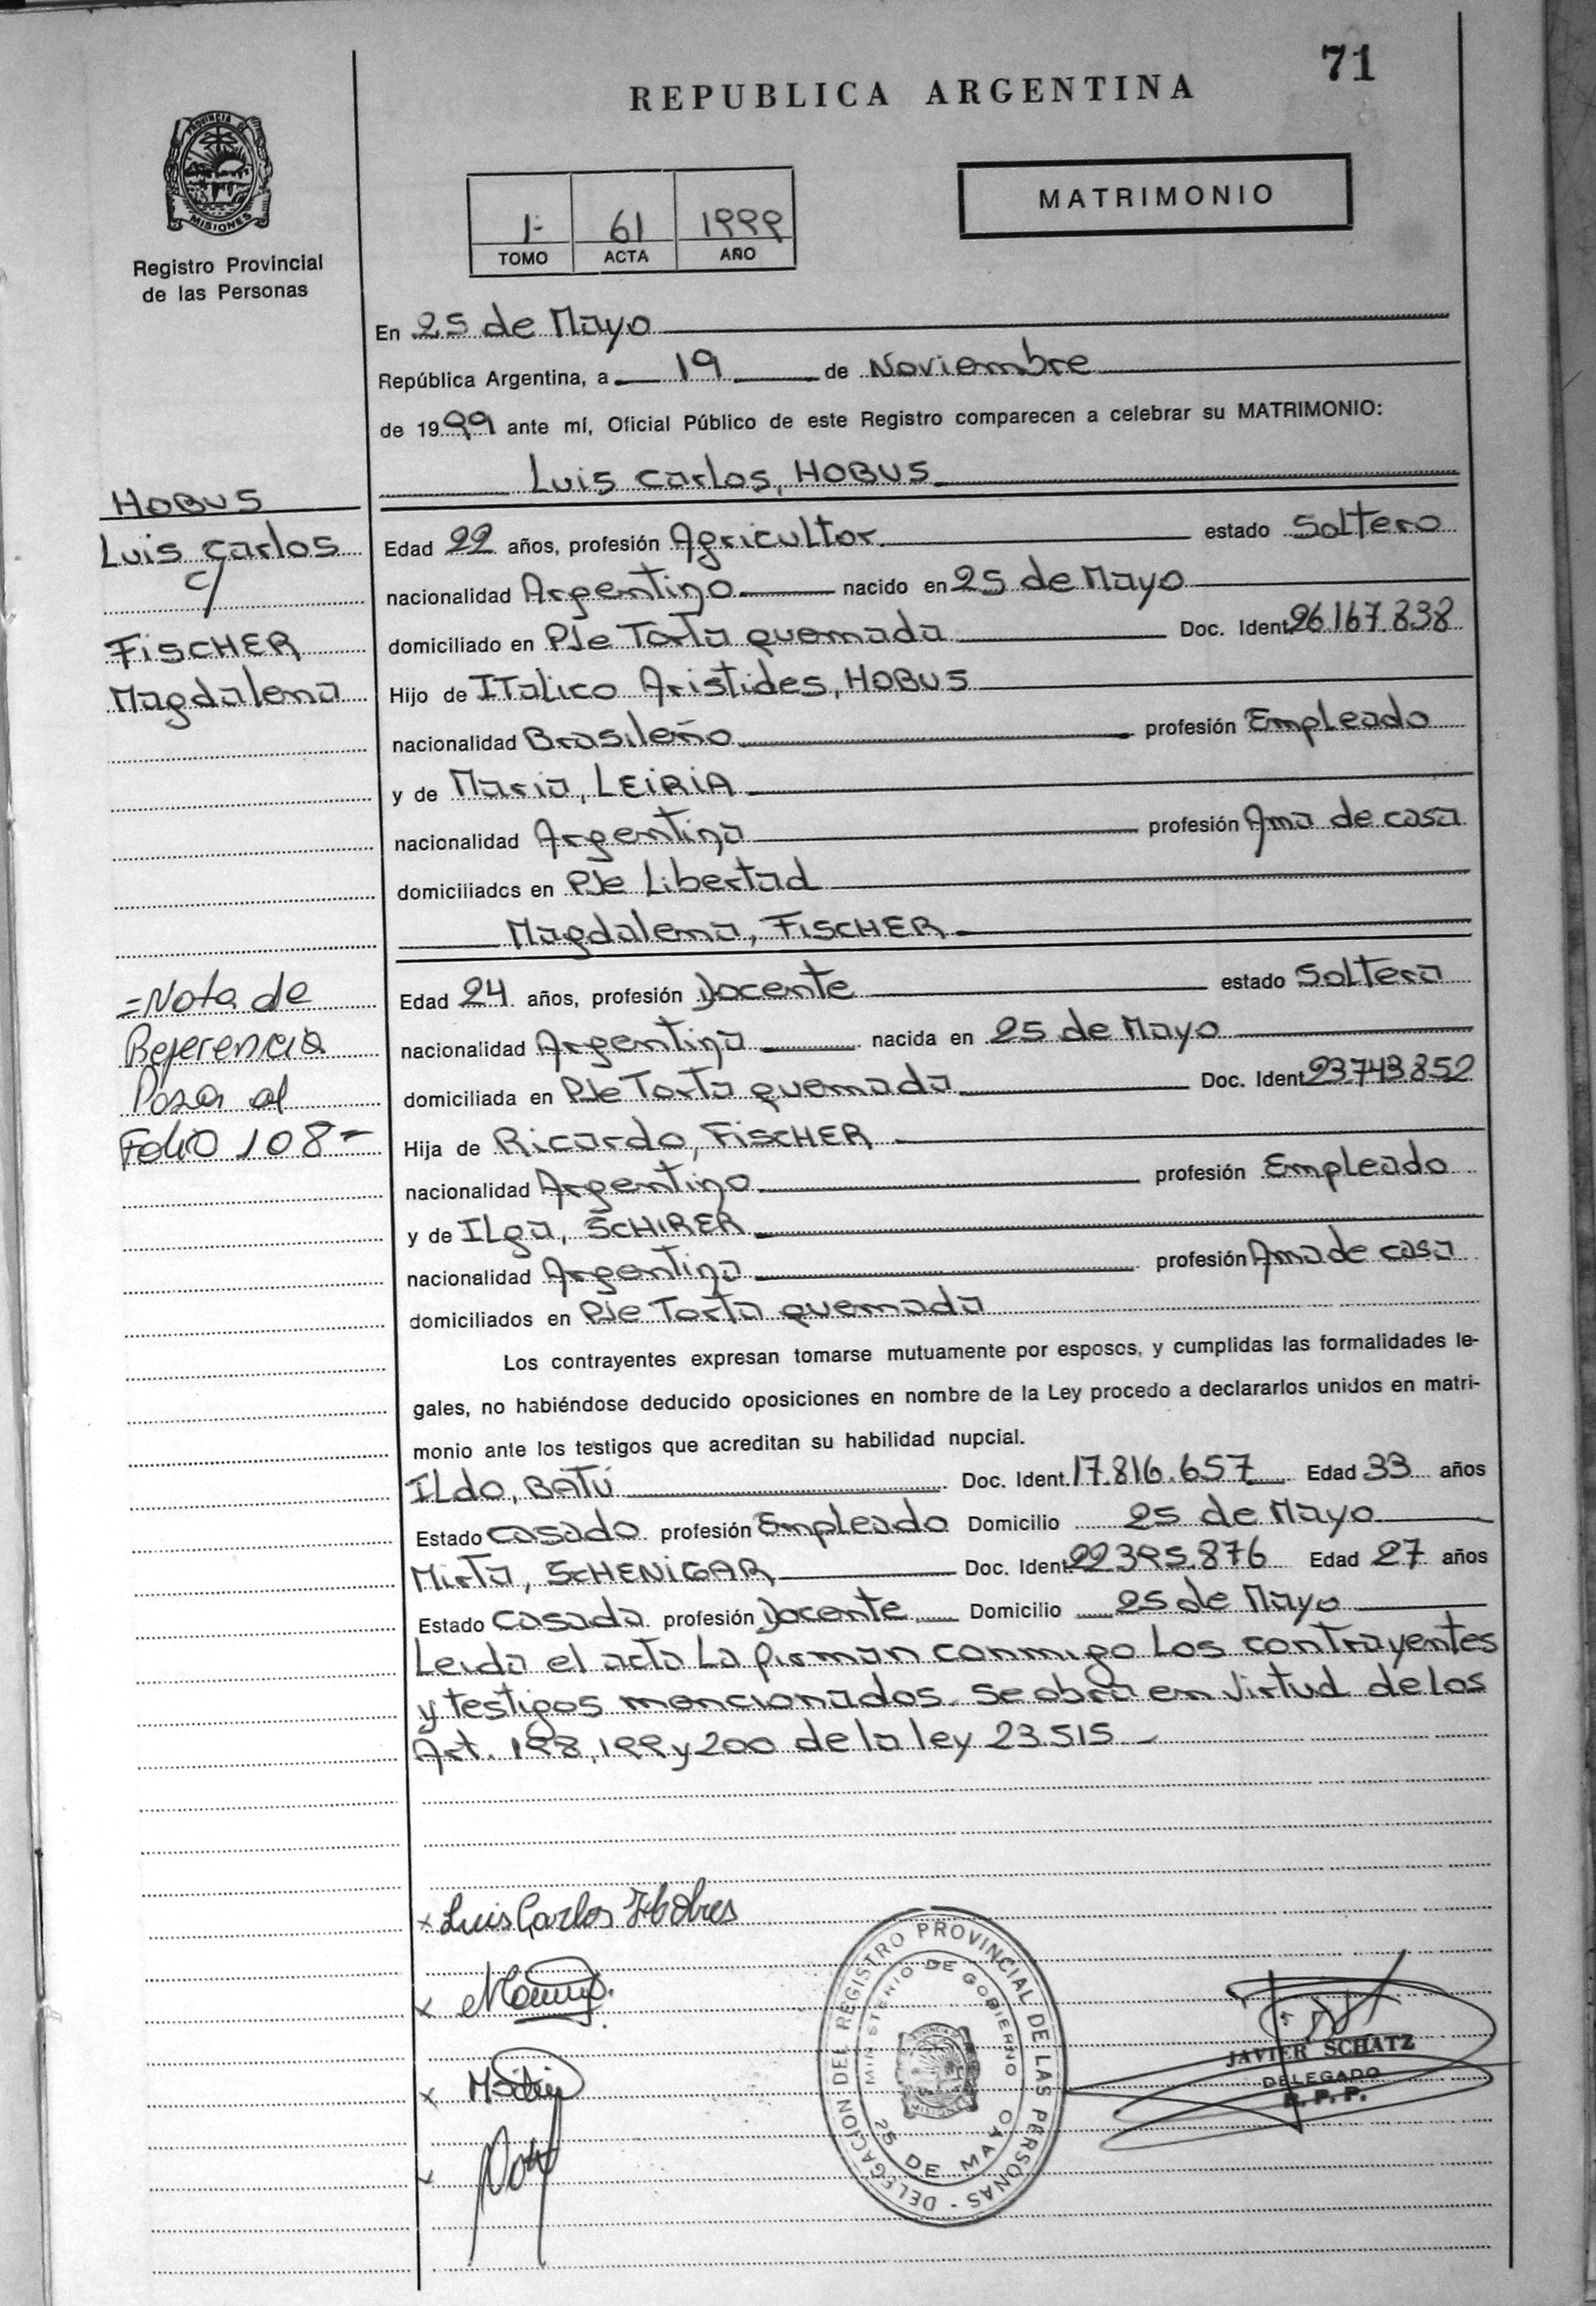 71
REPUBLICA ARGENTINA
PROVINCIA DE
MISIONES
Registro Provincial
de las Personas
MATRIMONIO
1- 61 1999
TOMO ACTA AÑO
En 25 de Mayo
República Argentina, a 19 de Noviembre
de 1999 ante mí, Oficial Público de este Registro comparecen a celebrar su MATRIMONIO:
Luis Carlos, HOBUS
HOBUS
Luis Carlos
c/
FiSCHER
Magdalena
Edad 22 años, profesión Agricultor estado Soltero
nacionalidad Argentino nacido en 25 de Mayo
domiciliado en Pje Torta quemada Doc. Ident. 26.167.838
Hijo de Italico Aristides, HOBUS
nacionalidad Brasileño profesión Empleado
y de Maria, LEIRIA
nacionalidad Argentina profesión Ama de casa
domiciliados en Pje Libertad
Magdalena, FiSCHER
=Nota de
Referencia
Pasa al
Folio 108=
Edad 24 años, profesión Docente estado Soltera
nacionalidad Argentina nacida en 25 de Mayo
domiciliada en Pje Torta quemada Doc. Ident. 23.743.852
Hija de Ricardo, FiSCHER
nacionalidad Argentino profesión Empleado
y de ILga, SCHIRER
nacionalidad Argentina profesión Ama de casa
domiciliados en Pje Torta quemada
Los contrayentes expresan tomarse mutuamente por esposos, y cumplidas las formalidades le-
gales, no habiéndose deducido oposiciones en nombre de la Ley procedo a declararlos unidos en matri-
monio ante los testigos que acreditan su habilidad nupcial.
ILdo, BATÚ Doc. Ident. 17.816.657 Edad 33 años
Estado Casado profesión Empleado Domicilio 25 de Mayo
Mirta, SCHENiGAR Doc. Ident. 22.395.876 Edad 27 años
Estado Casada profesión Docente Domicilio 25 de Mayo
Leida el acta La firman conmigo Los contrayentes
y testigos mencionados. Se obra en virtud de los
Art. 198, 199 y 200 de la ley 23.515
x Luis Carlos Hobus
x
x
x
DELEGACION DEL REGISTRO PROVINCIAL DE LAS PERSONAS
MINISTERIO DE GOBIERNO
PROVINCIA DE
MISIONES
25 DE MAYO
JAVIER SCHATZ
DELEGADO
R. P. P.